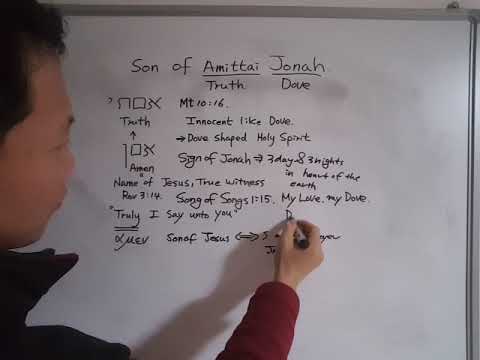 Son of Amittai Jonah.
Truth Dove
אמתי Mt 10:16.
Truth Innocent like Dove.
↑ → Dove Shaped Holy Spirit
אמן
Amen Sign of Jonah ⇒ 3 day & 3 nights
in heart of the
earth
Name of Jesus, True witness
Rev 3:14. Song of Songs 1:15. My Love. my Dove.
"Truly I Say unto you"
αμεν Son of Jesus ⟺